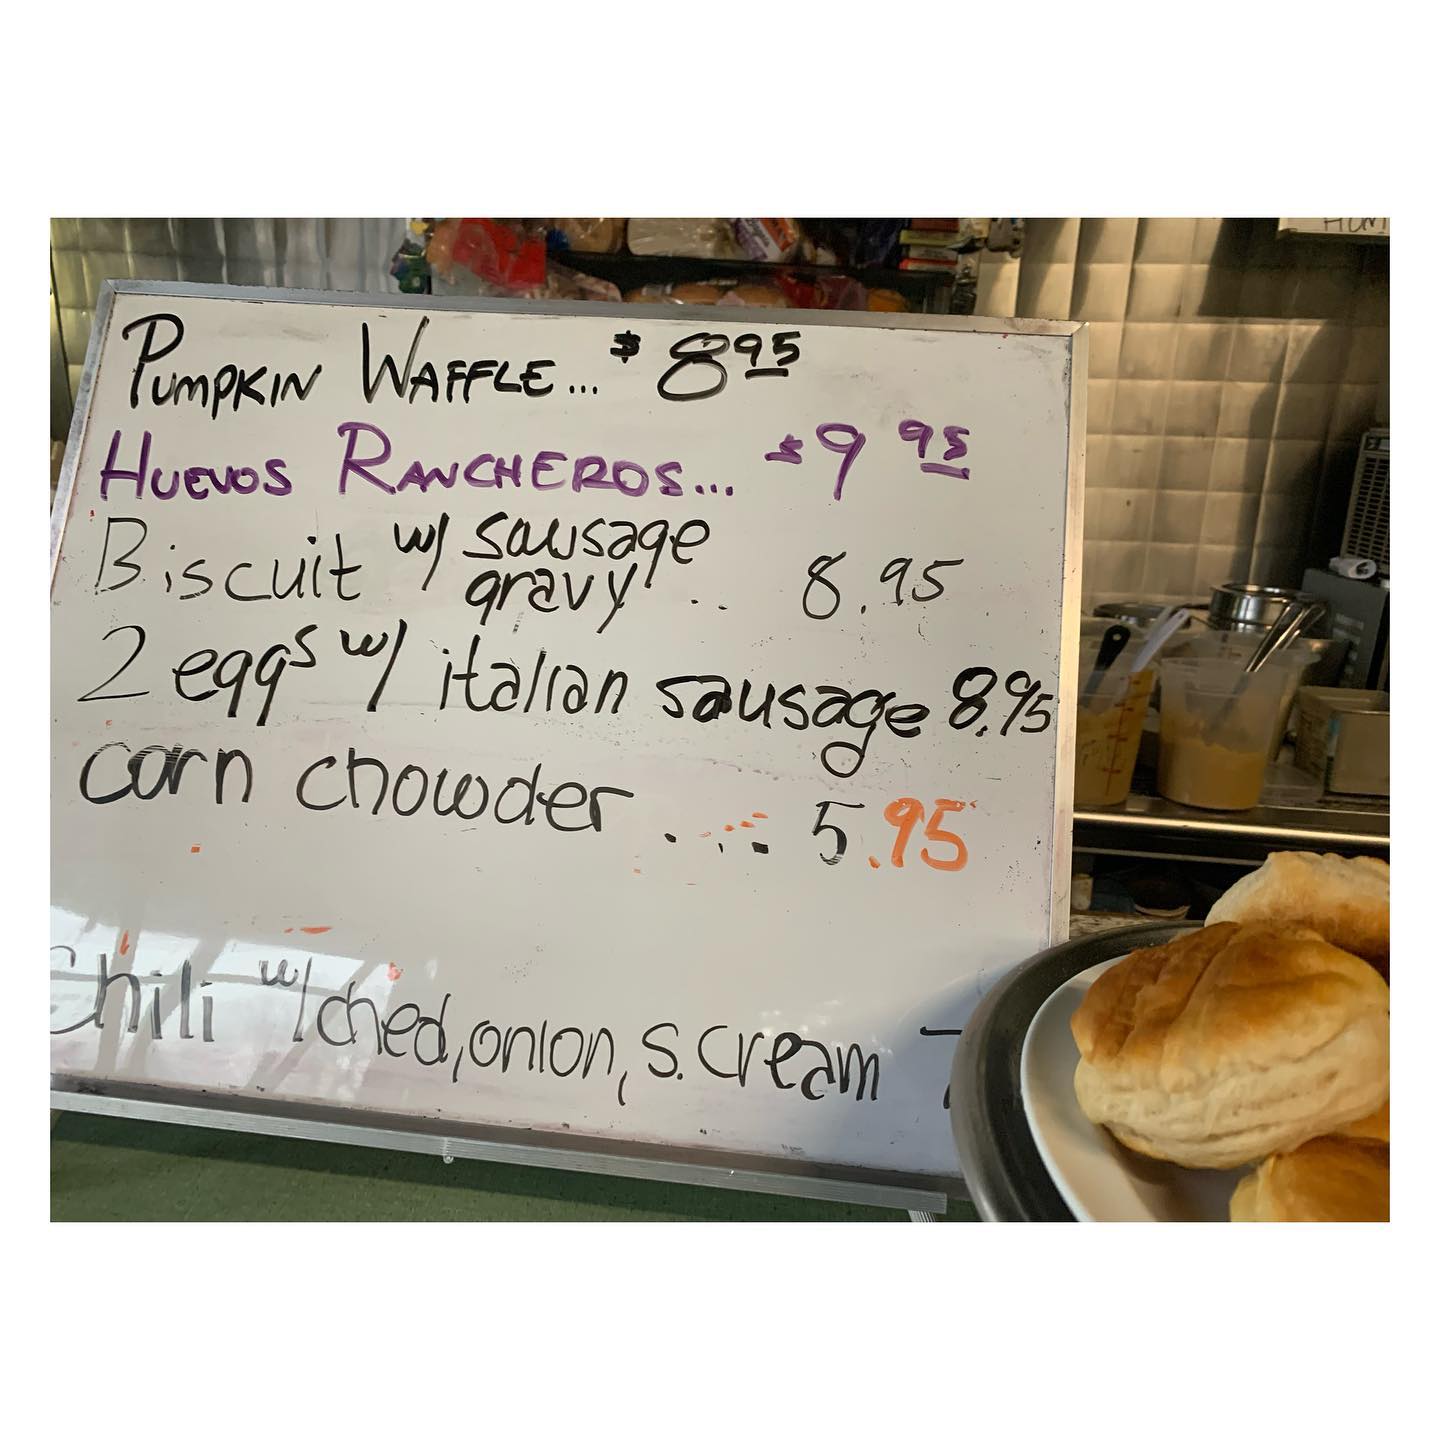 PUMPKIN WAFFLE... $8 95
HUEVOS RANCHEROS... $9 95
Biscuit w/ sausage
gravy .. 8.95
2 eggs w/ italian sausage 8.95
corn chowder .... 5.95
Chili w/ ched, onion, s. cream 7